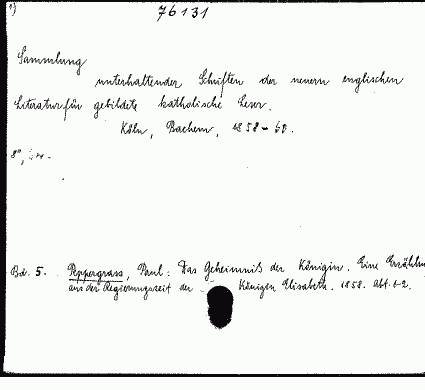 1)
76131
Sammlung
unterhaltender Schriften der neuern englischen
Literatur für gebildete katholische Leser.
Köln, Bachem, 1858-60.
8°,
Bd. 5. Peppergrass, Paul: Das Geheimniß der Königin. Eine Erzählun
aus der Regierungszeit der Königin Elisabeth. 1858. Abt. 1-2.